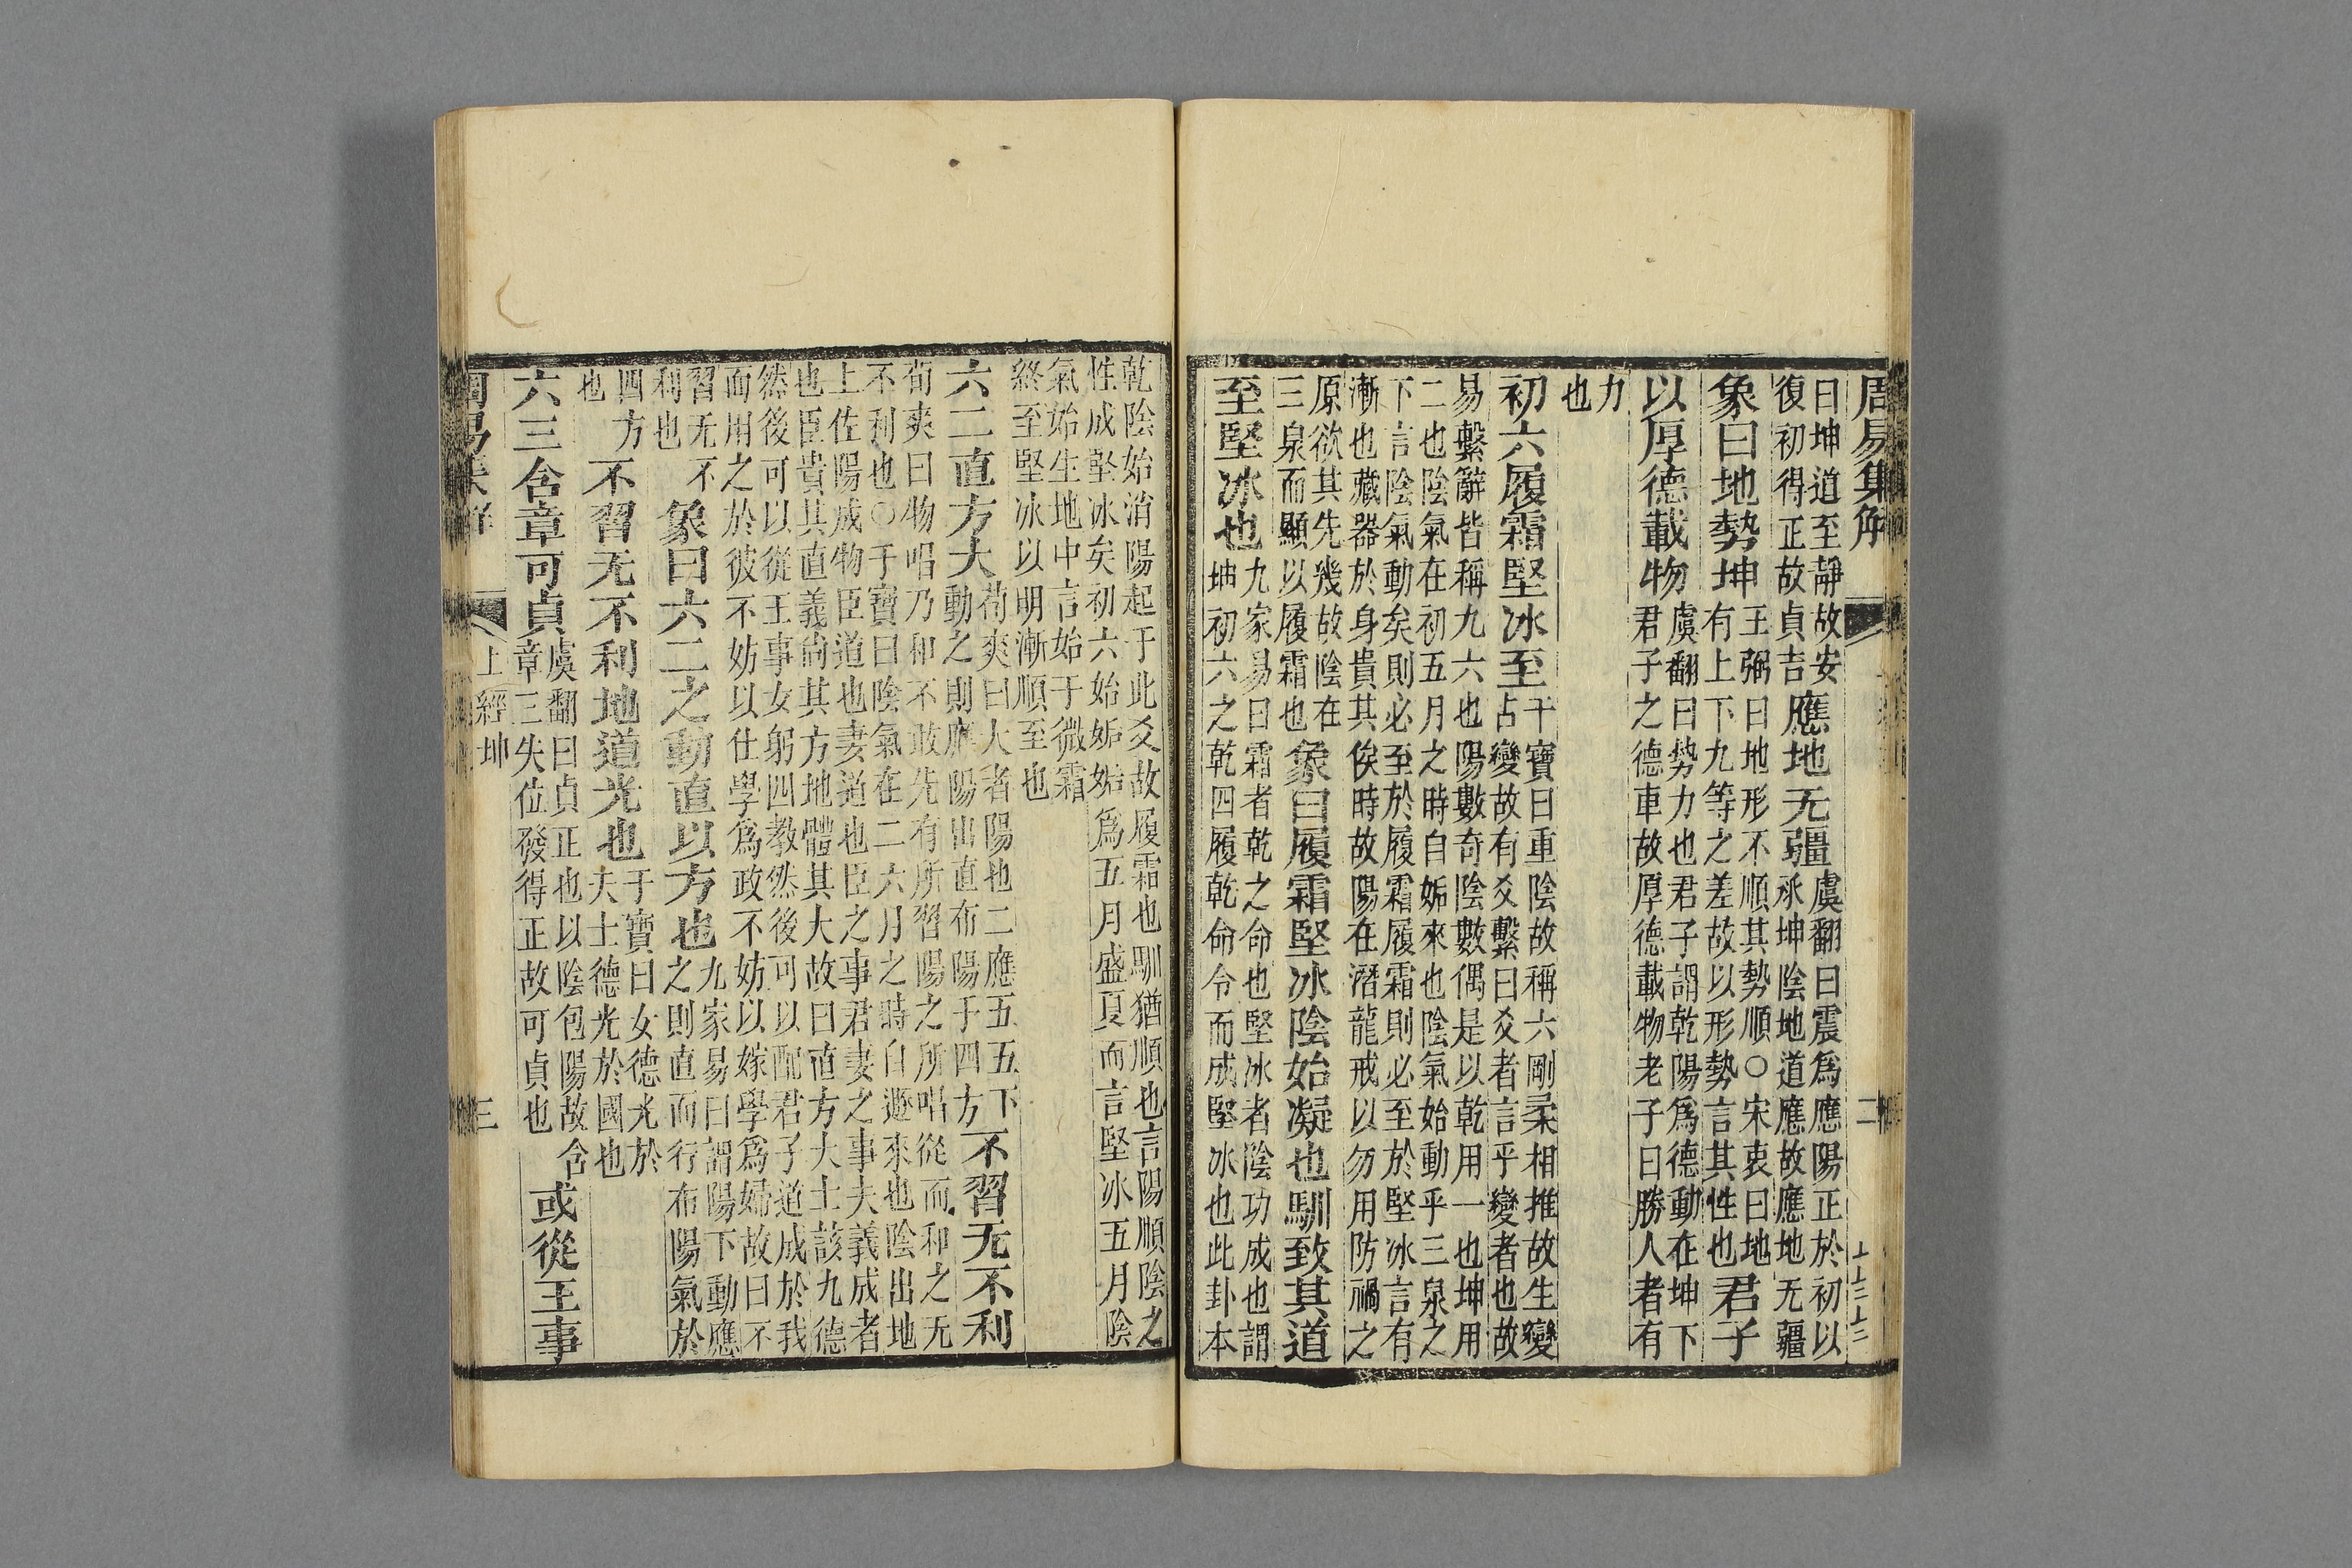 周易集解 二
曰坤道至靜故安
復初得正故貞吉
應地无疆
虞翻曰震爲應陽正於初以
承坤陰地道應故應地无疆
象曰地勢坤
王弼曰地形不順其勢順○宋衷曰地
有上下九等之差故以形勢言其性也
君子
以厚德載物
虞翻曰勢力也君子謂乾陽爲德動在坤下
君子之德車故厚德載物老子曰勝人者有
力
也
初六履霜堅冰至
干寶曰重陰故稱六剛柔相推故生變
占變故有爻繫曰爻者言乎變者也故
易繫辭皆稱九六也陽數奇陰數偶是以乾用一也坤用
二也陰氣在初五月之時自姤來也陰氣始動乎三泉之
下言陰氣動矣則必至於履霜履霜則必至於堅冰言有
漸也藏器於身貴其俟時故陽在潛龍戒以勿用防禍之
原欲其先幾故陰在
三泉而顯以履霜也
象曰履霜堅冰陰始凝也馴致其道
至堅冰也
九家易曰霜者乾之命也堅冰者陰功成也謂
坤初六之乾四履乾命令而成堅冰也此卦本
乾陰始消陽起于此爻故履霜也馴猶順也言陽順陰之
性成堅冰矣初六始姤姤爲五月盛夏而言堅冰五月陰
氣始生地中言始于微霜
終至堅冰以明漸順至也
六二直方大
荀爽曰大者陽也二應五五下
動之則應陽出直布陽于四方
不習无不利
荀爽曰物唱乃和不敢先有所習陽之所唱從而和之无
不利也○于寶曰陰氣在二六月之時自遯來也陰出地
上佐陽成物臣道也妻道也臣之事君妻之事夫義成者
也臣貴其直義尚其方地體其大故曰直方大士該九德
然後可以從王事女躬四教然後可以配君子道成於我
而用之於彼不妨以仕學爲政不妨以嫁學爲婦故曰不
習无不
利也
象曰六二之動直以方也
九家易曰謂陽下動應
之則直而行布陽氣於
四方
也
不習无不利地道光也
干寶曰女德光於
夫士德光於國也
六三含章可貞
虞翻曰貞正也以陰包陽故含
章三失位發得正故可貞也
或從王事
周易集解 上經 坤 三